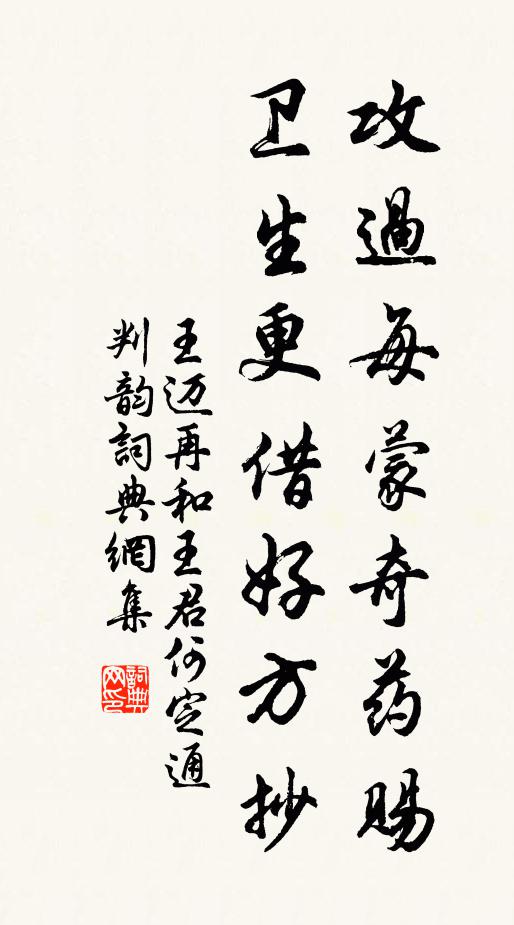 攻過每蒙奇药賜
卫生更借好方抄
王迈再和王君何定通
判韵詞典網集
詞典
网印